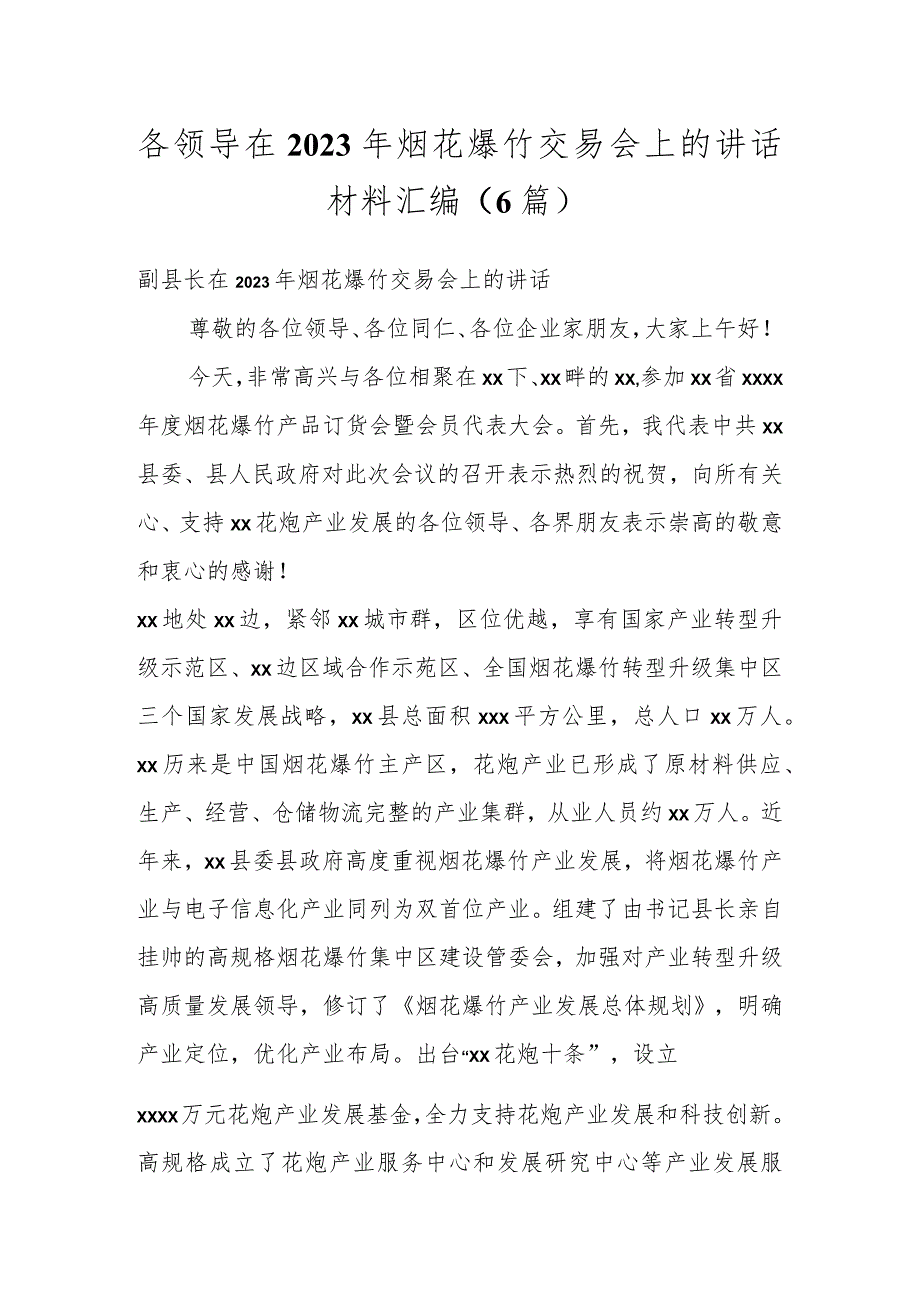 各领导在2023年烟花爆竹交易会上的讲话
材料汇编（6篇）
副县长在2023年烟花爆竹交易会上的讲话
尊敬的各位领导、各位同仁、各位企业家朋友，大家上午好！
今天，非常高兴与各位相聚在xx下、xx畔的xx,参加xx省xxxx
年度烟花爆竹产品订货会暨会员代表大会。首先，我代表中共xx
县委、县人民政府对此次会议的召开表示热烈的祝贺，向所有关
心、支持xx花炮产业发展的各位领导、各界朋友表示崇高的敬意
和衷心的感谢！
xx地处xx边，紧邻xx城市群，区位优越，享有国家产业转型升
级示范区、xx边区域合作示苑区、全国烟花爆竹转型升级集中区
三个国家发展战略，xx县总面积xxx平方公里，总人口xx万人。
xx历来是中国烟花爆竹主产区，花炮产业已形成了原材料供应、
生产、经营、仓储物流完整的产业集群，从业人员约xx万人。近
年来，xx县委县政府高度重视烟花爆竹产业发展，将烟花爆竹产
业与电子信息化产业同列为双首位产业。组建了由书记县长亲自
挂帅的高规格烟花爆竹集中区建设管委会，加强对产业转型升级
高质量发展领导，修订了《烟花爆竹产业发展总体规划》，明确
产业定位，优化产业布局。出台“xx花炮十条”，设立
xxxx万元花炮产业发展基金，全力支持花炮产业发展和科技创新。
高规格成立了花炮产业服务中心和发展研究中心等产业发展服